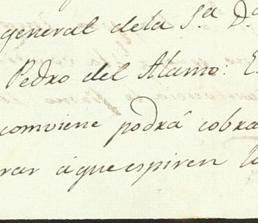 general dela S.ª D.
Pedro del Alamo. E
comviene podrá cobra
rar á que espiren